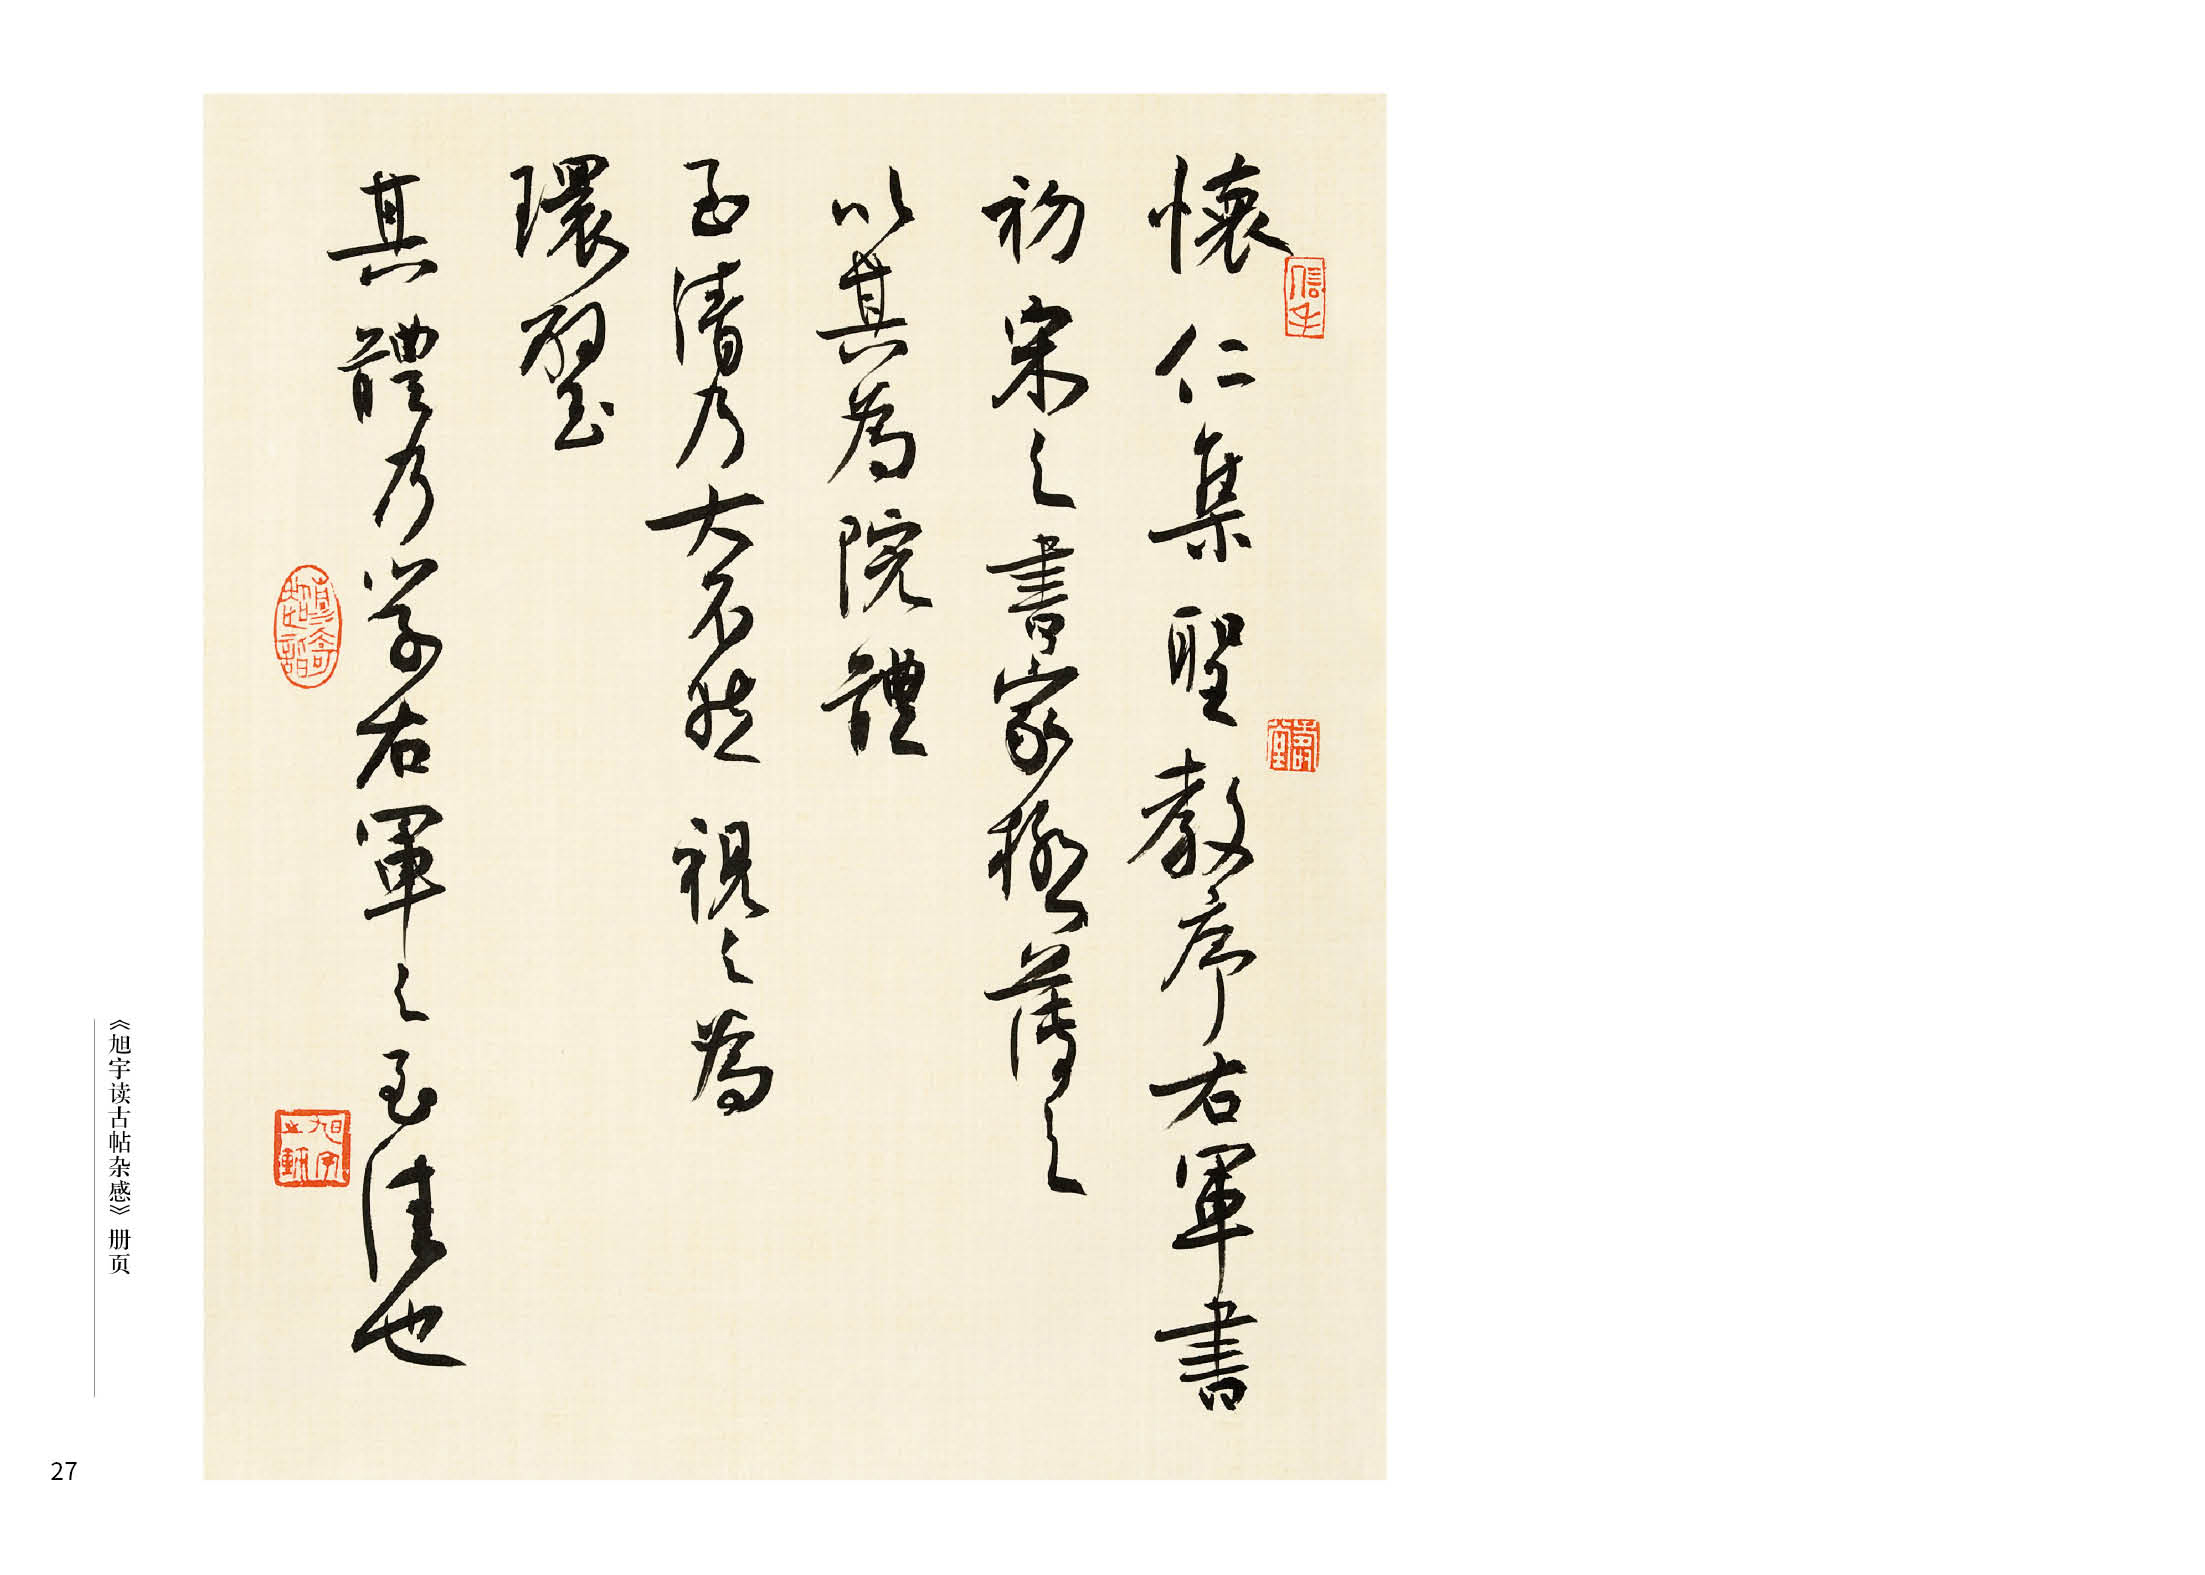 懷仁集聖教序右軍書
初宋之書家極薄之
以其為院體
至清乃大不然視之為
環璧
其體乃學右軍之至佳也
信手
旭宇
《旭宇读古帖杂感》册页
27